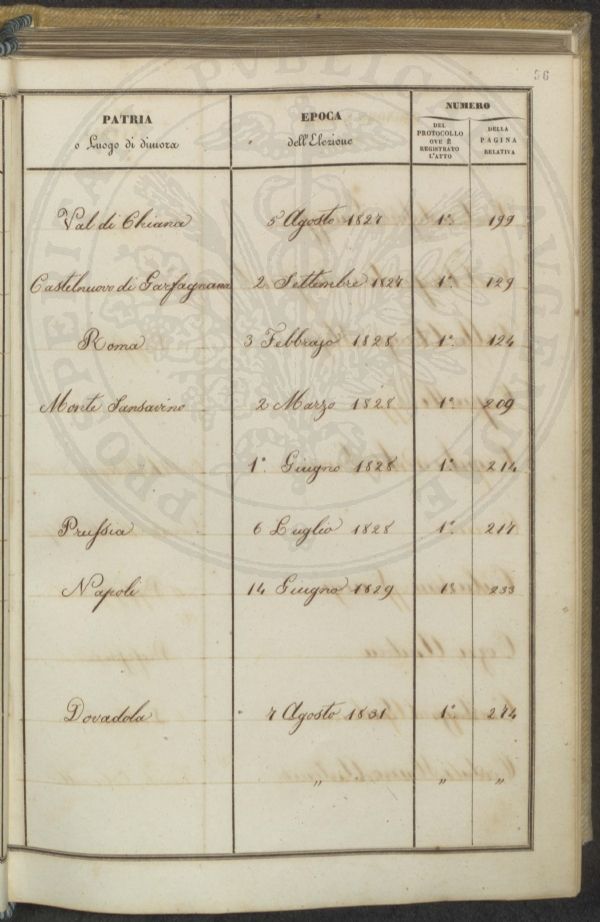 36
PATRIA
o Luogo di dimora
EPOCA
dell'Elezione
NUMERO
DEL
PROTOCOLLO
OVE È
REGISTRATO
L'ATTO
DELLA
PAGINA
RELATIVA
Val di Chiana 5 Agosto 1827 1° 199
Castelnuovo di Garfagnana 2 Settembre 1827 1° 129
Roma 3 Febbrajo 1828 1° 124
Monte Sansavino 2 Marzo 1828 1° 209
1° Giugno 1828 1° 214
Prussia 6 Luglio 1828 1° 217
Napoli 14 Giugno 1829 1° 233
Dovadola 7 Agosto 1831 1° 274
„ „ „
PROSPERITATI PUBLICAE AUGENDAE